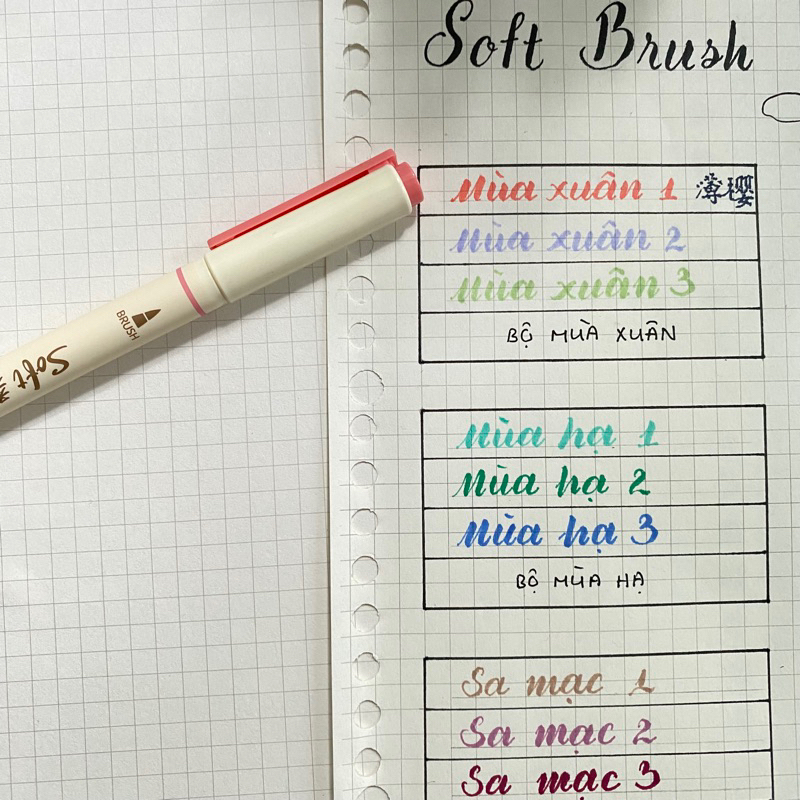 Soft Brush
Mùa xuân 1 薄櫻
Mùa xuân 2
Mùa xuân 3
BỘ MÙA XUÂN
Mùa hạ 1
Mùa hạ 2
Mùa hạ 3
BỘ MÙA HẠ
Sa mạc 1
Sa mạc 2
Sa mạc 3
BRUSH
Soft